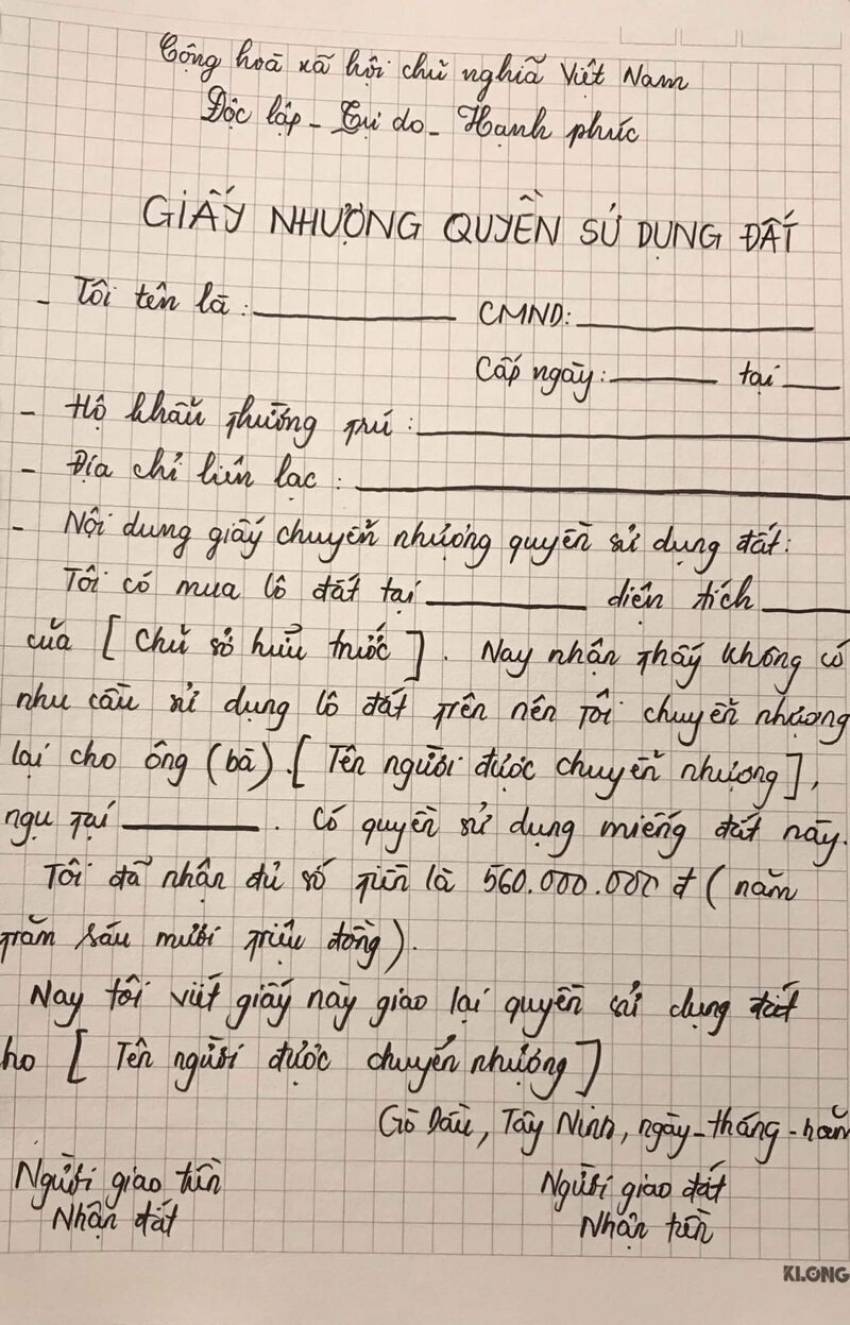 Cộng hoà xã hội chủ nghĩa Việt Nam
Độc lập - Tự do - Hạnh phúc
GIẤY NHƯỢNG QUYỀN SỬ DỤNG ĐẤT
- Tôi tên là: __________ CMND: __________
Cấp ngày: ______ tại ____
- Hộ khẩu thường trú: __________
- Địa chỉ liên lạc: __________
- Nội dung giấy chuyển nhượng quyền sử dụng đất:
Tôi có mua lô đất tại ________ diện tích ____
của [ Chủ sở hữu trước ]. Nay nhận thấy không có
nhu cầu sử dụng lô đất trên nên tôi chuyển nhượng
lại cho ông (bà). [ Tên người được chuyển nhượng ],
ngụ tại ________. Có quyền sử dụng miếng đất này.
Tôi đã nhận đủ số tiền là 560.000.000 đ ( năm
trăm sáu mươi triệu đồng ).
Nay tôi viết giấy này giao lại quyền sử dụng đất
ho [ Tên người được chuyển nhượng ]
Gò Dầu, Tây Ninh, ngày - tháng - năm
Người giao tiền Người giao đất
Nhận đất Nhận tiền
KLONG